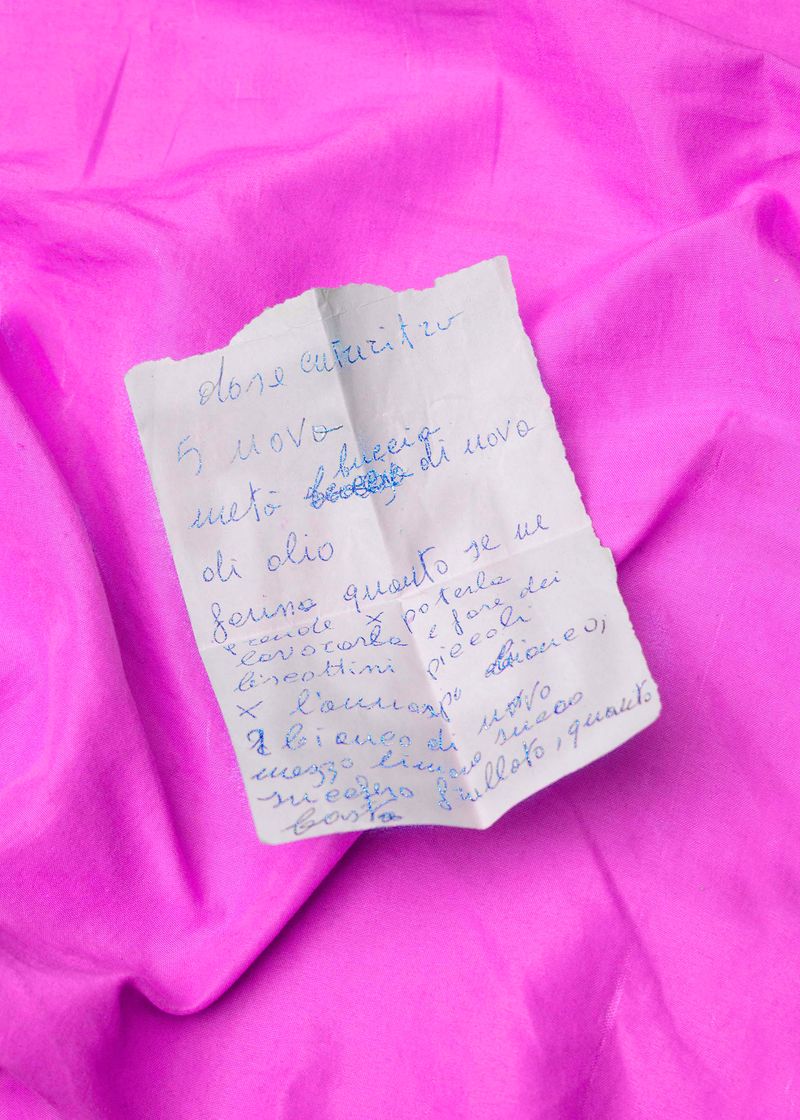 dose
5 uova
buccia
metà di uova
di olio
farina quanto se ne
prende x poterla
lavorarla e fare dei
biscottini piccoli
x l'annaspo bianco,
1 bianco di uovo
mezzo limone succo
zucchero frullato, quanto
basta